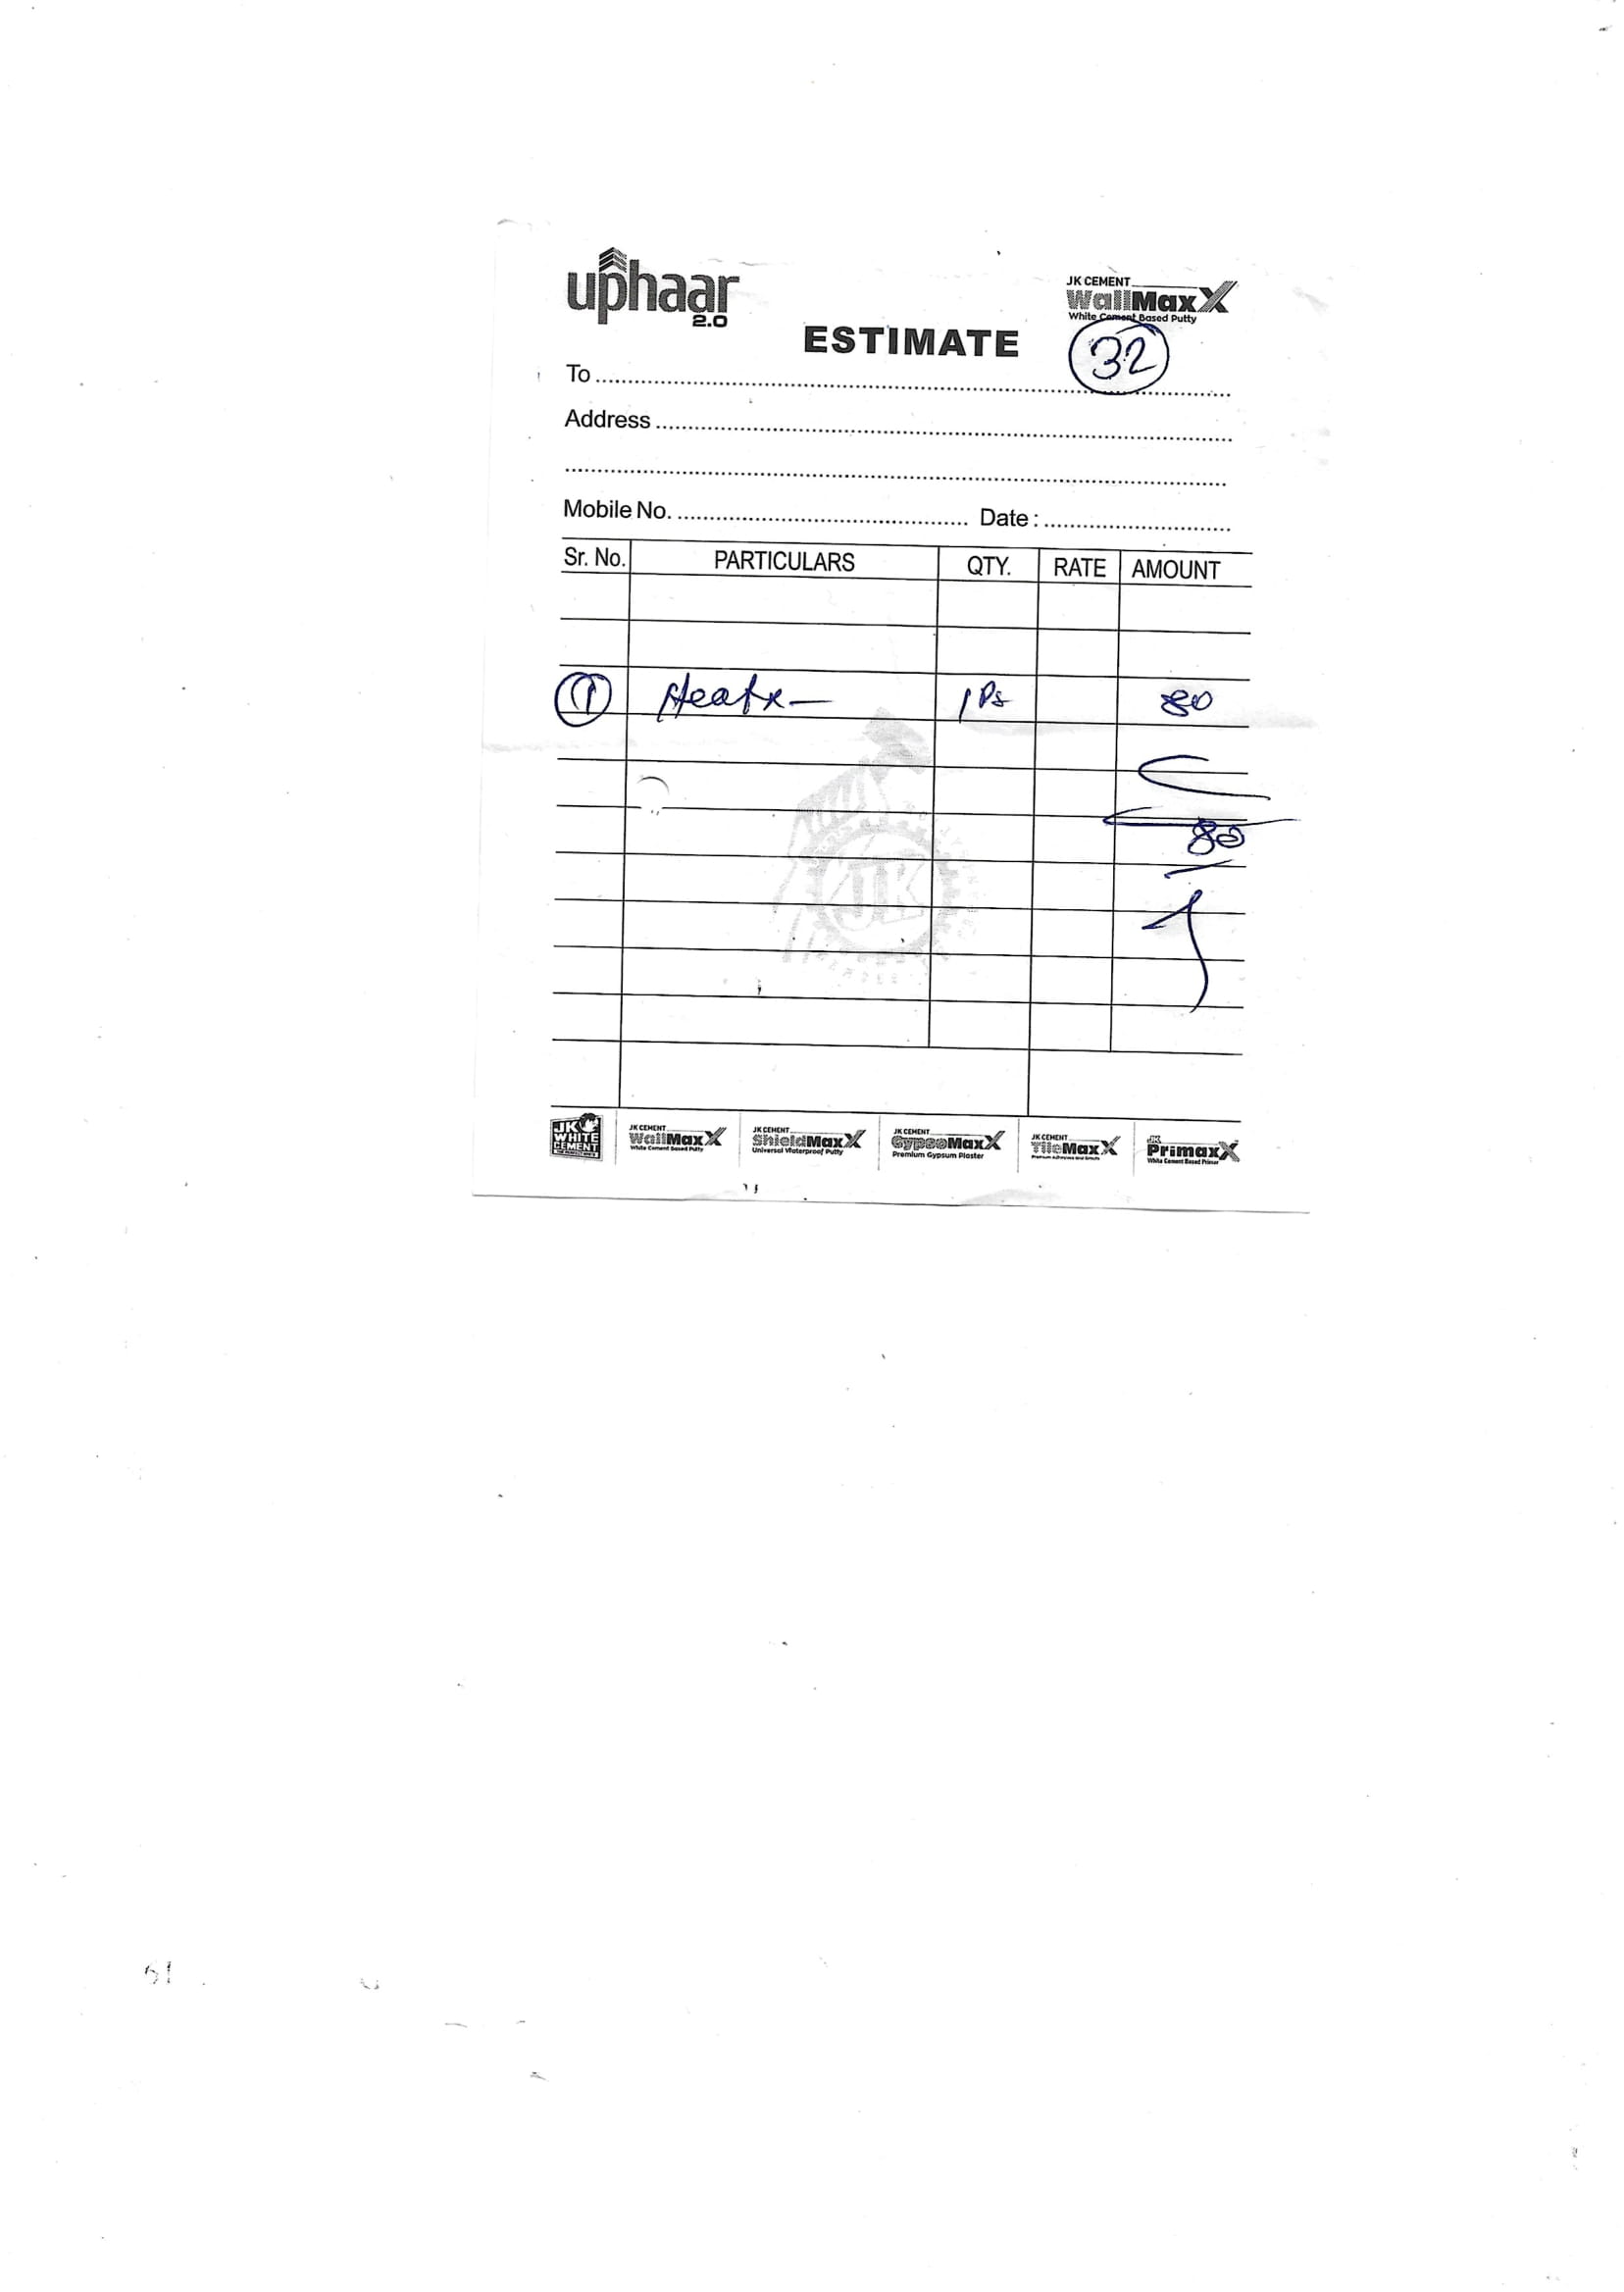 uphaar
2.0
JK CEMENT
WallMaxX
White Cement Based Putty
ESTIMATE
32
To
Address
Mobile No. Date :
Sr. No. PARTICULARS QTY. RATE AMOUNT
1 1 Ps 80
80
JK
JK WHITE CEMENT
JK CEMENT WallMaxX White Cement Based Putty
JK CEMENT ShieldMaxX Universal Waterproof Putty
JK CEMENT GypsoMaxX Premium Gypsum Plaster
JK CEMENT TileMaxX
JK PrimaxX White Cement Based Primer